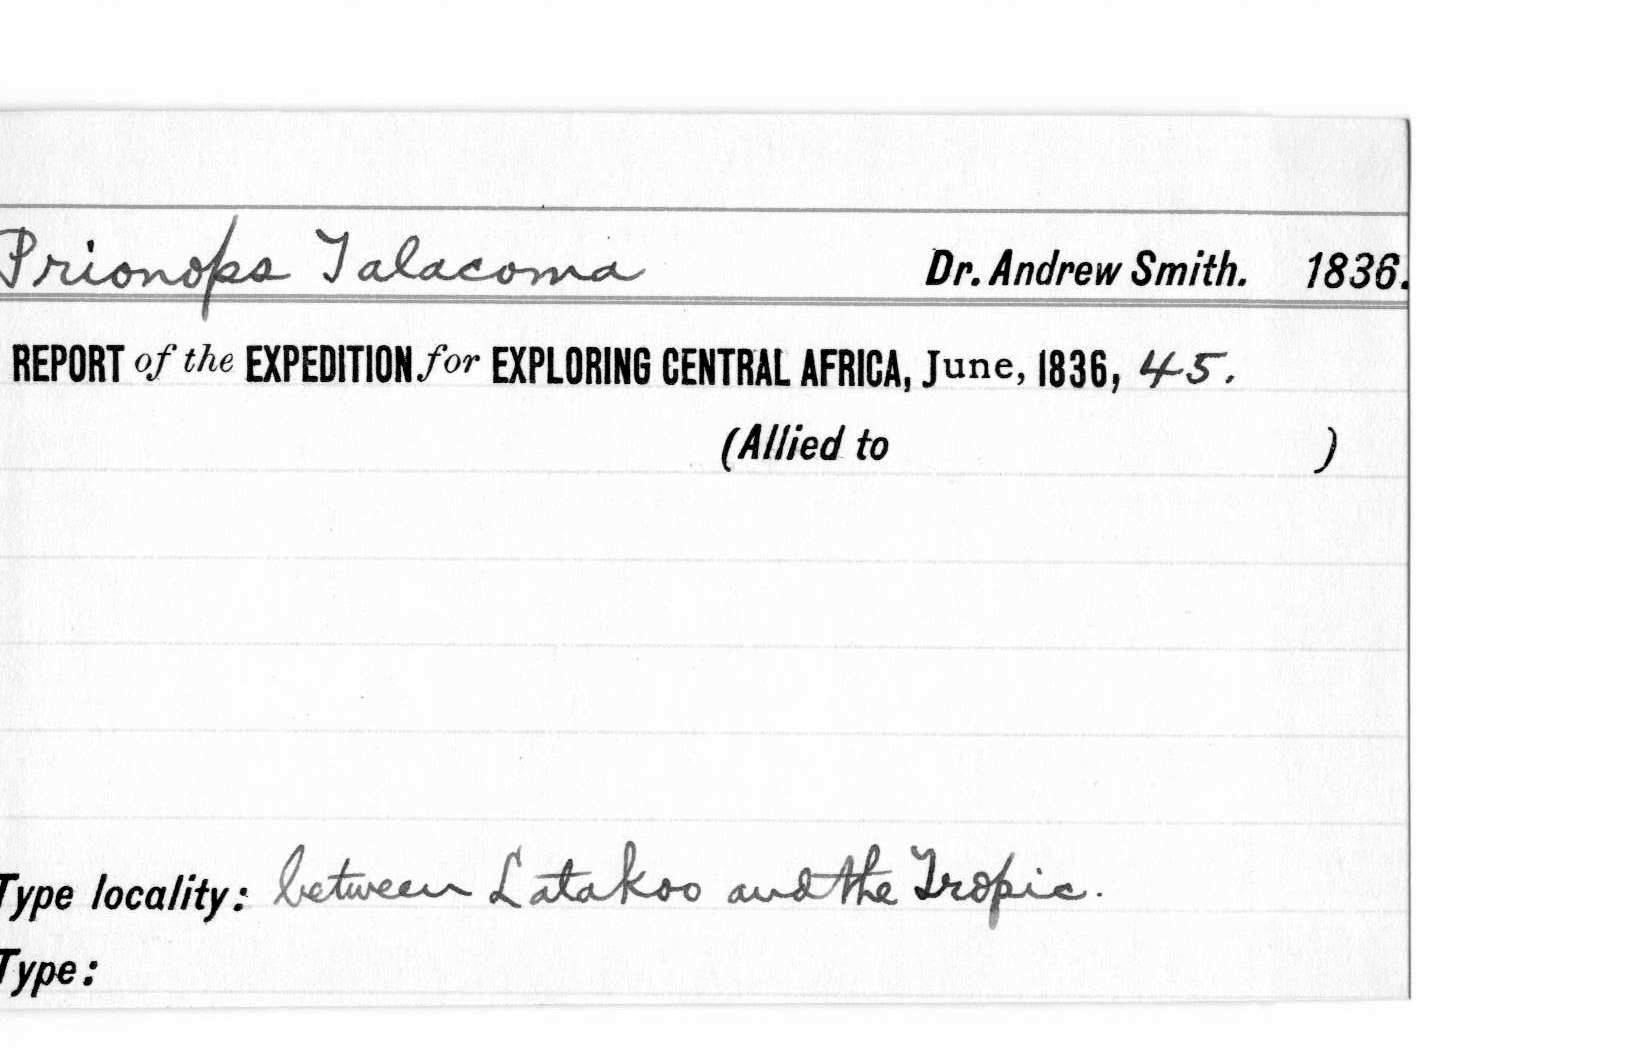 Prionops Talacoma Dr. Andrew Smith. 1836.
REPORT of the EXPEDITION for EXPLORING CENTRAL AFRICA, June, 1836, 45.
(Allied to )
Type locality: between Latakoo and the Tropic.
Type: